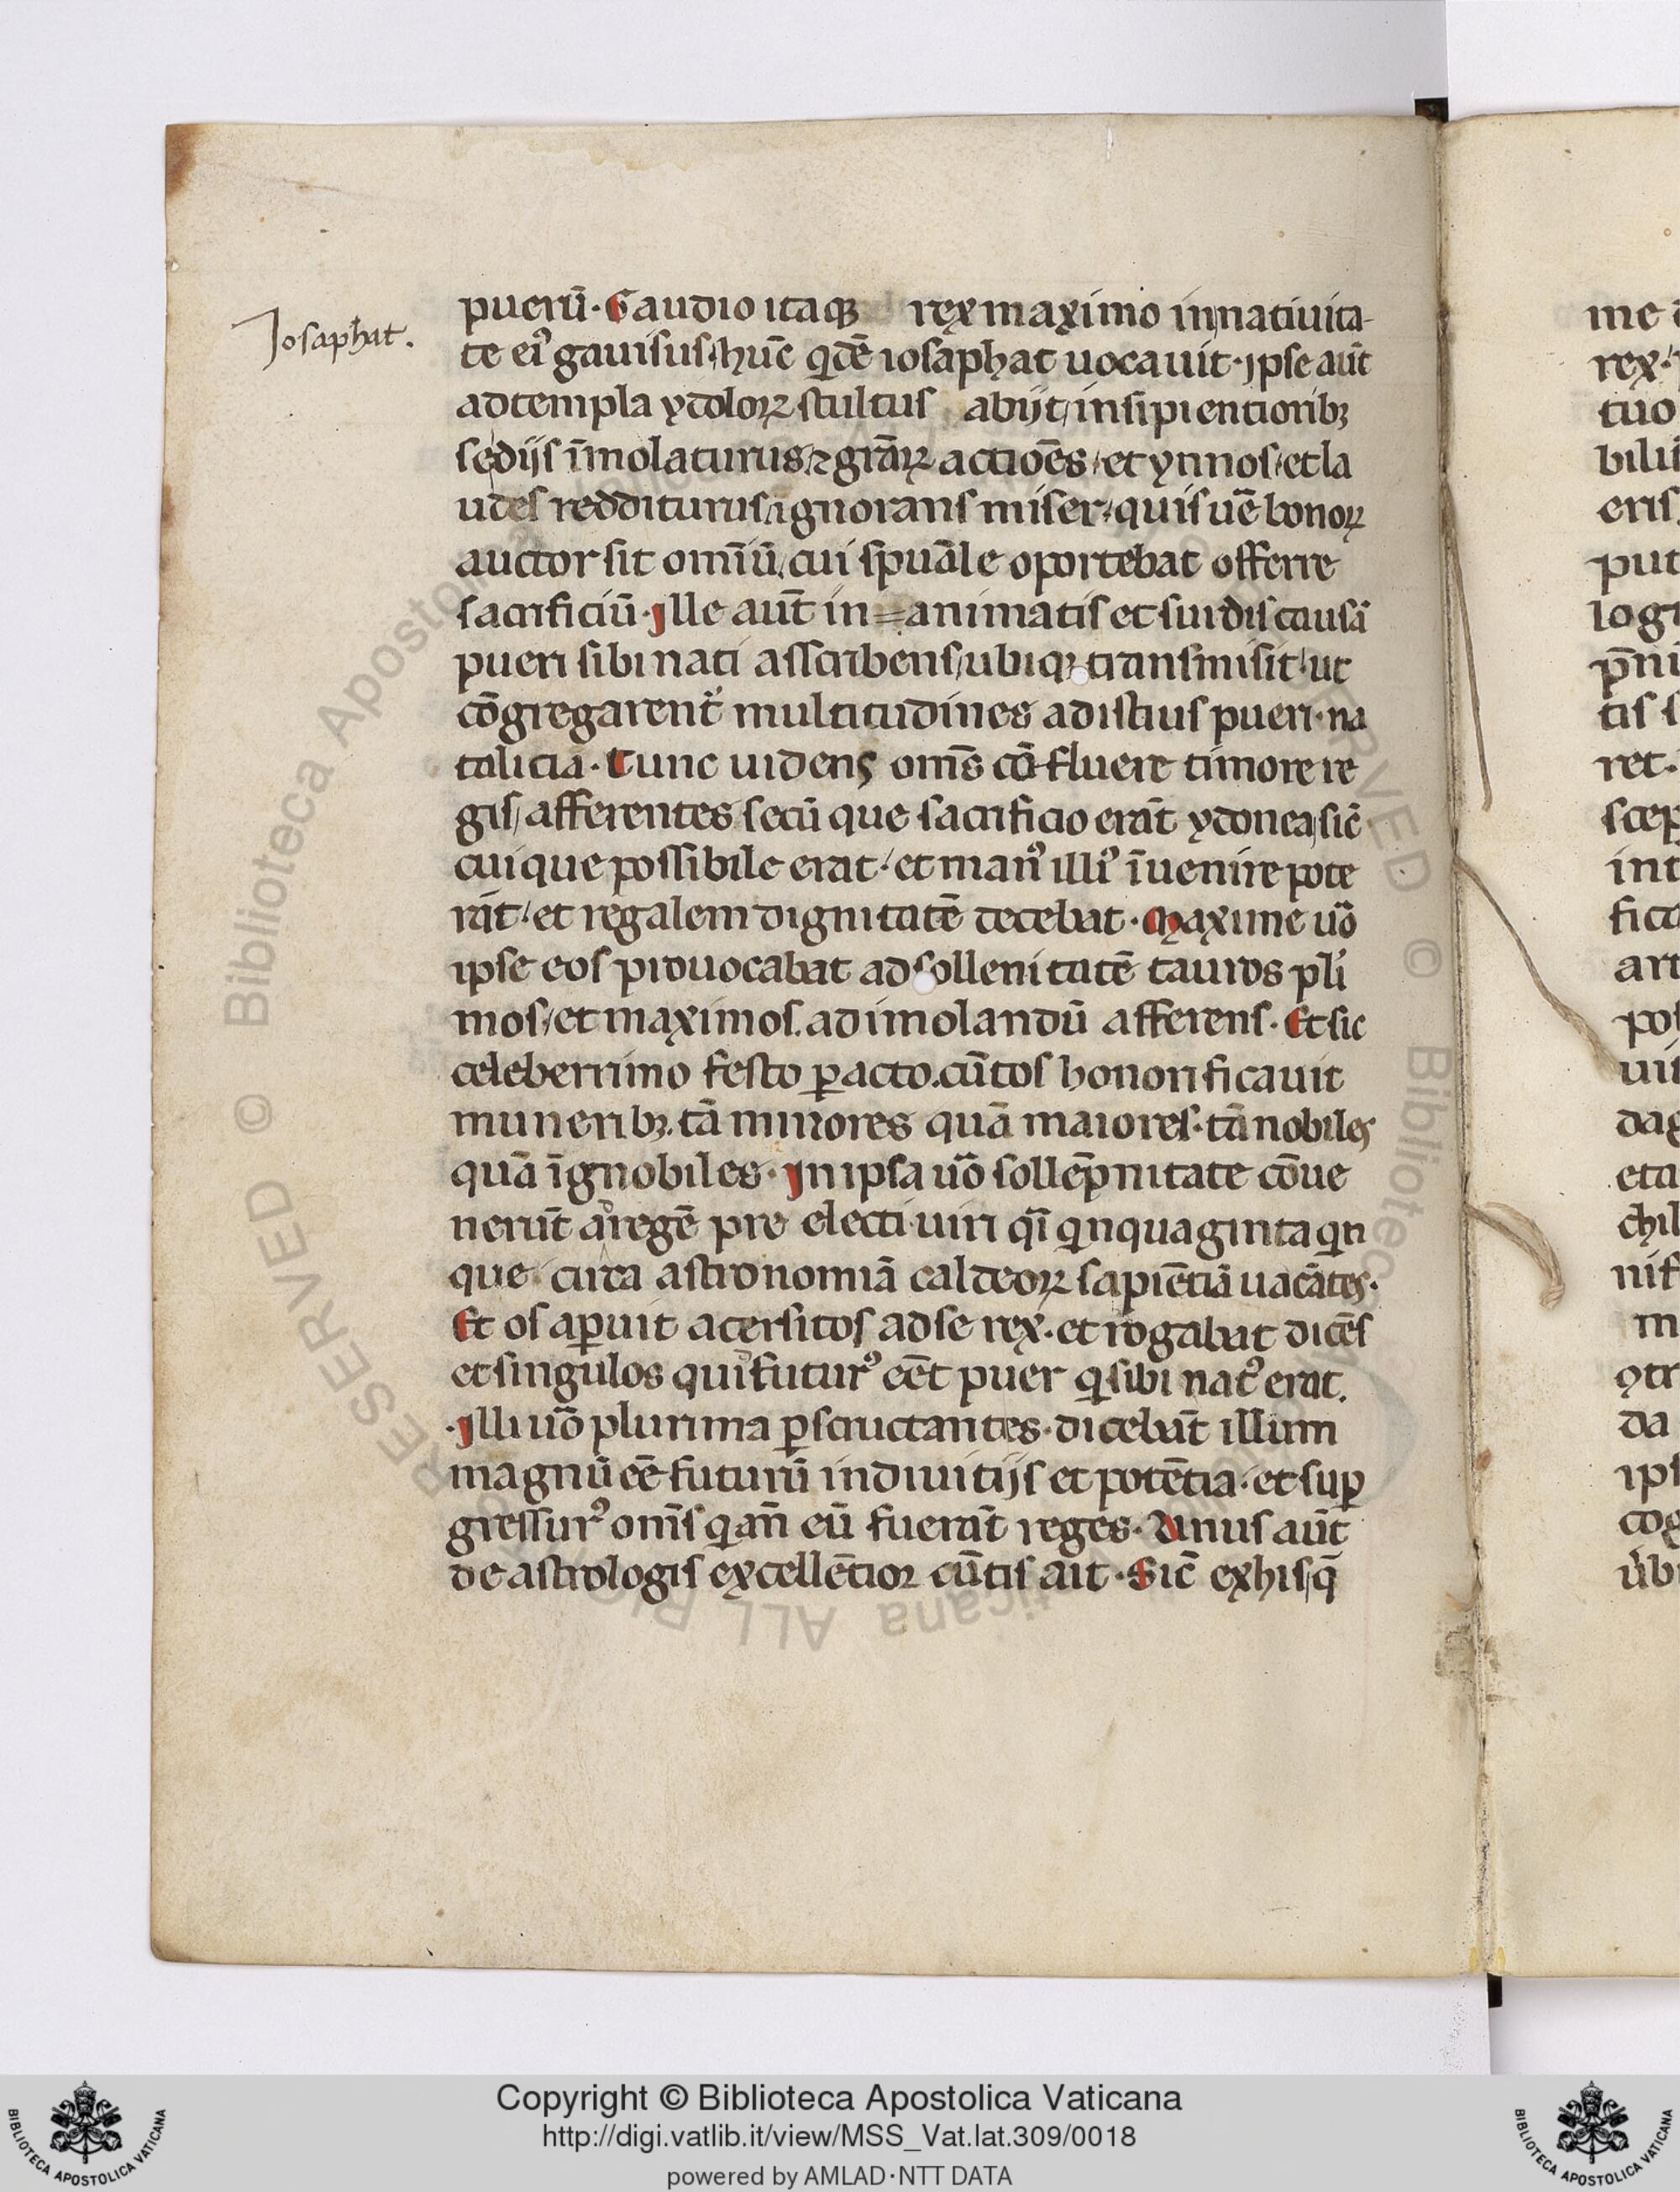 Iosaphat.
puerū· Gaudio itaqꝫ rex maximo in natiuita-
te eiꝰ gauisus hūc qͥdē iosaphat uocauit· jpse aūt
ad templa ydoloꝝ stultus abijt insipientioribꝫ
se dijs īmolaturus ⁊ grāꝝ actiōes et ynnos et la
udes redditurus ignorans miser quis uē bonoꝝ
auctor sit omīū cui spūale oportebat offerre
sacrificiū· jlle aūt in=animatis et surdis causā
pueri sibi nati asscribens ubiqꝫ transmisit ut
cōgregarent᷑ multitudines ad istius pueri· na
talicia· Tunc uidens om̄s cōfluere timore re
gis afferentes secū que sacrificio erāt ydonea sic̄
cuique possibile erat· et manꝰ illiꝰ īuenire pote
rāt et regalem dignitatē decebat· Maxime uō
ipse eos prouocabat ad sollenitatē tauros plī
mos et maximos. ad imolandū afferens· Et sic
celeberrimo festo ꝑacto. cūctos honorificauit
muneribꝫ. tā minores quā maiores· tā nobiles
quā īgnobiles· jn ipsa uō sollēpnitate cōue
nerūt a regē pre electi uiri qͣi qͥnquaginta qͥn
que circa astronomiā caldeoꝝ sapiētiā uacātes·
Et os aꝑuit acersitos ad se rex· et rogabat dicēs
et singulos qui futurꝰ eēt puer qͥ sibi natꝰ erat.
·jlli uō plurima ꝑscructantes· dicebāt illum
magnū eē futurū in diuitijs et potētia· et suꝑ
gressurꝰ om̄s qͥ an̄ eū fuerāt reges· Unus aūt
de astrologis excellētior cūctis ait· Sic̄ ex his q̄
me
rex·
tuo
bili
eris
put
logi
p̄ni
tis
ret·
scep
int
fica
art
pos
uis
dag
eta
chil
nis
m
ꝯtr
da
ips
cog
ubi
© Biblioteca Apostolica Vaticana ALL RIGHTS RESERVED
Copyright © Biblioteca Apostolica Vaticana
http://digi.vatlib.it/view/MSS_Vat.lat.309/0018
powered by AMLAD·NTT DATA
BIBLIOTECA APOSTOLICA VATICANA
BIBLIOTECA APOSTOLICA VATICANA